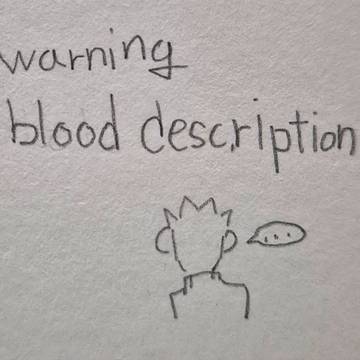 warning
blood description
...